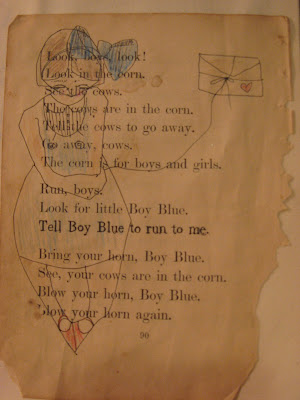 Look, boys, look!
Look in the corn.
See the cows.
The cows are in the corn.
Tell the cows to go away.
Go away, cows.
The corn is for boys and girls.
Run, boys.
Look for little Boy Blue.
Tell Boy Blue to run to me.
Bring your horn, Boy Blue.
See, your cows are in the corn.
Blow your horn, Boy Blue.
Blow your horn again.
90